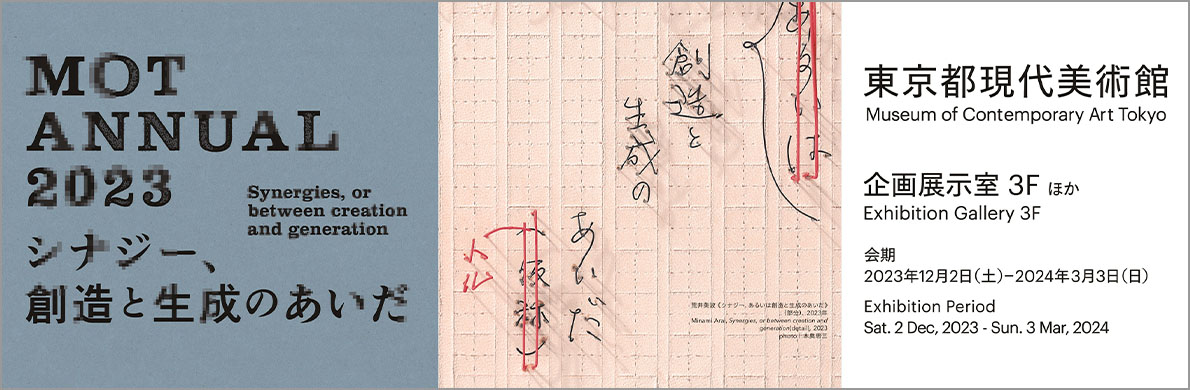 MOT
ANNUAL
2023
Synergies, or
between creation
and generation
シナジー、
創造と生成のあいだ
あるいは
創造と
生成の
あいだ
(仮称)
荒井美波《シナジー、あるいは創造と生成のあいだ》
(部分)、2023年
Minami Arai, Synergies, or between creation and
generation(detail), 2023
photo|木奥惠三
東京都現代美術館
Museum of Contemporary Art Tokyo
企画展示室 3F ほか
Exhibition Gallery 3F
会期
2023年12月2日(土)–2024年3月3日(日)
Exhibition Period
Sat. 2 Dec, 2023 - Sun. 3 Mar, 2024